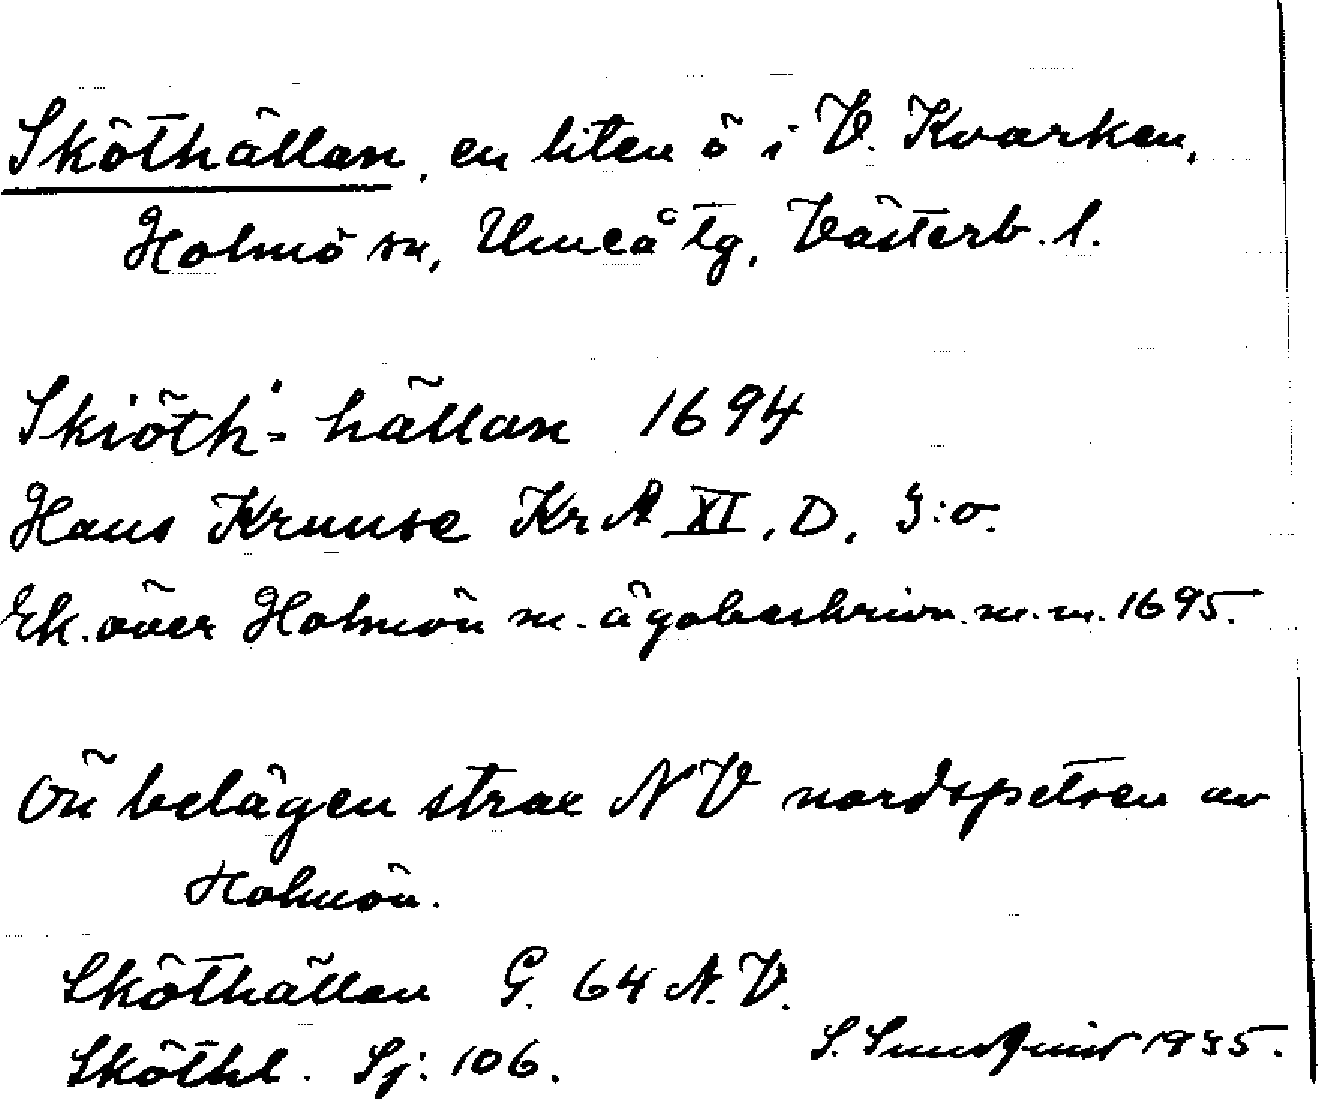 Sköthällan, en liten ö i V. Kvarken,
Holmö sn, Umeå tg, Västerb. l.
Skiöth-hällan 1694
Hans Kruuse KrA XI, D, 3:o.
Ek. över Holmön m. ägobeskrivn. m.m. 1695.
Ön belägen strax NV nordspetsen av
Holmön.
Sköthällan G. 64 N.V.
Sköthl. Sj: 106.
S. Sundqvist 1935.